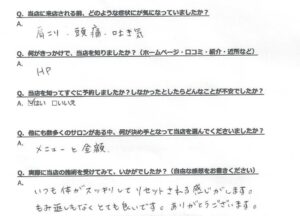 Q. 当店に来店される前、どのような症状が気になっていましたか？
A. 肩こり・頭痛・吐き気
Q. 何がきっかけで、当店を知りましたか？（ホームページ・口コミ・紹介・近所など）
A. HP
Q. 当店を知ってすぐに予約しましたか？しなかったとしたらどんなことが不安でしたか？
A. ☑はい □いいえ
Q. 他にも数多くのサロンがある中、何が決め手となって当店を選んでくださいましたか？
A. メニューと金額
Q. 実際に当店の施術を受けてみて、いかがでしたか？（自由な感想をお書きください）
A.
いつも体がスッキリしてリセットされる感じがします。
もみ返しもなくとても良いです。ありがとうございます。